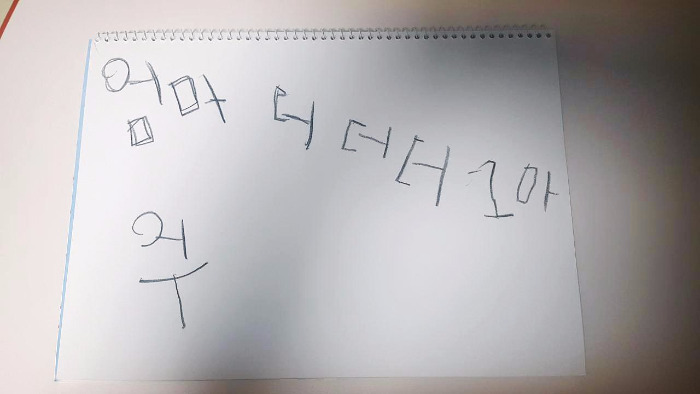 엄마 더 더 더 1 아